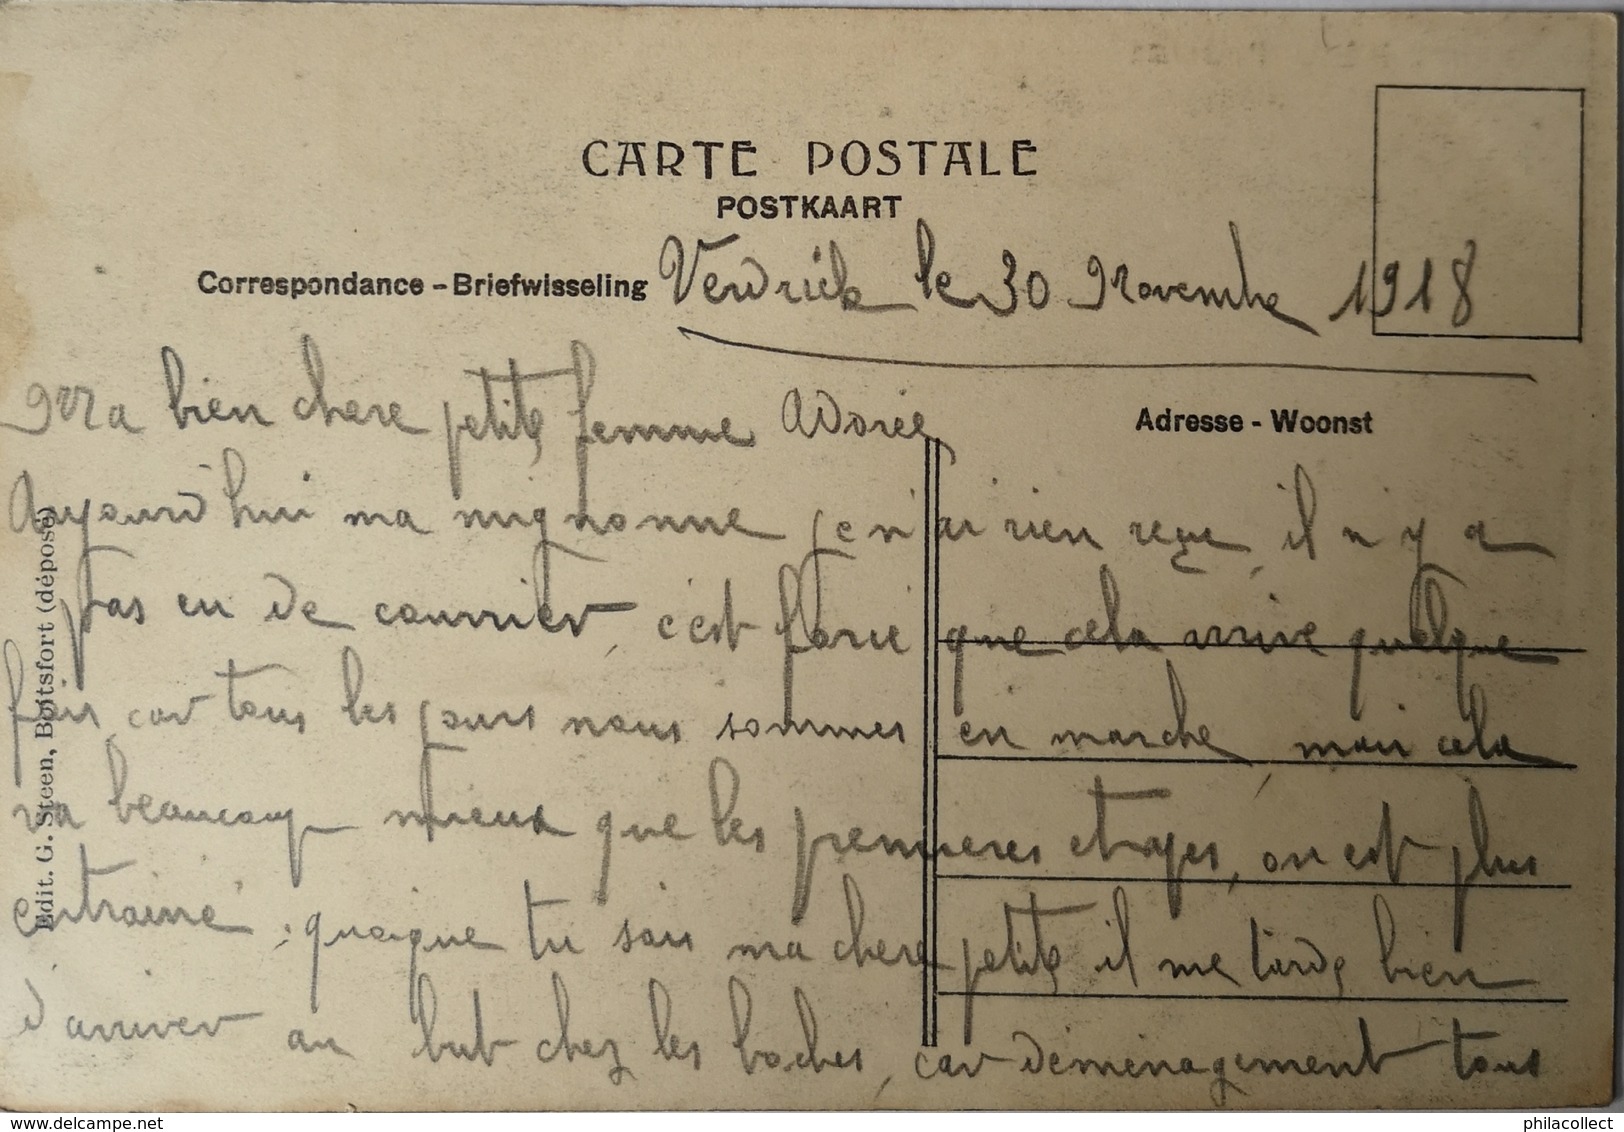 CARTE POSTALE
POSTKAART
Correspondance - Briefwisseling
Verdrick le 30 Novembre 1918
Adresse - Woonst
Ma bien chere petite femme Adorée
Aujourd'hui ma mignonne je n'ai rien reçue, il n'y a
pas eu de courrier, c'est forcé que cela arrive quelque
fois, car tous les jours nous sommes en marche, mais cela
va beaucoup mieux que les premieres etapes, on est plus
entrainé, quoique tu sais ma chere petite il me tarde bien
d'arriver au but chez les boches, car déménagement tous
Edit. G. Steen, Boitsfort (déposé)
philacollect
philacollect.com